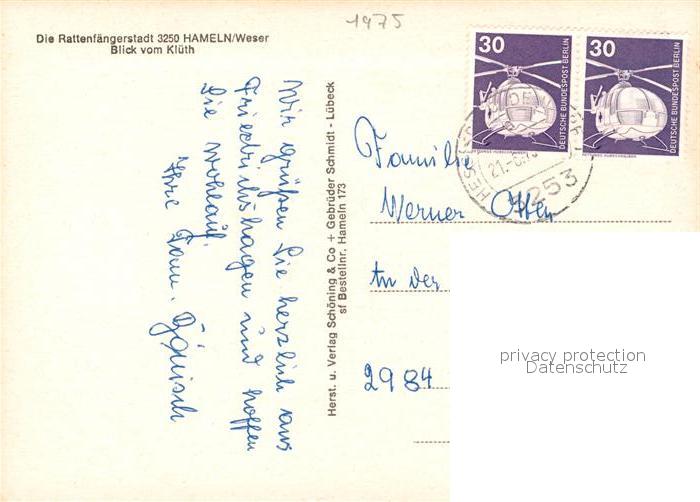 1975
Die Rattenfängerstadt 3250 HAMELN/Weser
Blick vom Klüth
30
DEUTSCHE BUNDESPOST BERLIN
30
DEUTSCHE BUNDESPOST BERLIN
3253
Wir grüßen Sie herzlich aus
Friedrichshagen und hoffen
Sie wohlauf.
Ihre Fam.
Herst. u. Verlag Schöning & Co + Gebrüder Schmidt - Lübeck
sf Bestellnr. Hameln 173
Familie
Werner Otten
An der
2984
privacy protection
Datenschutz